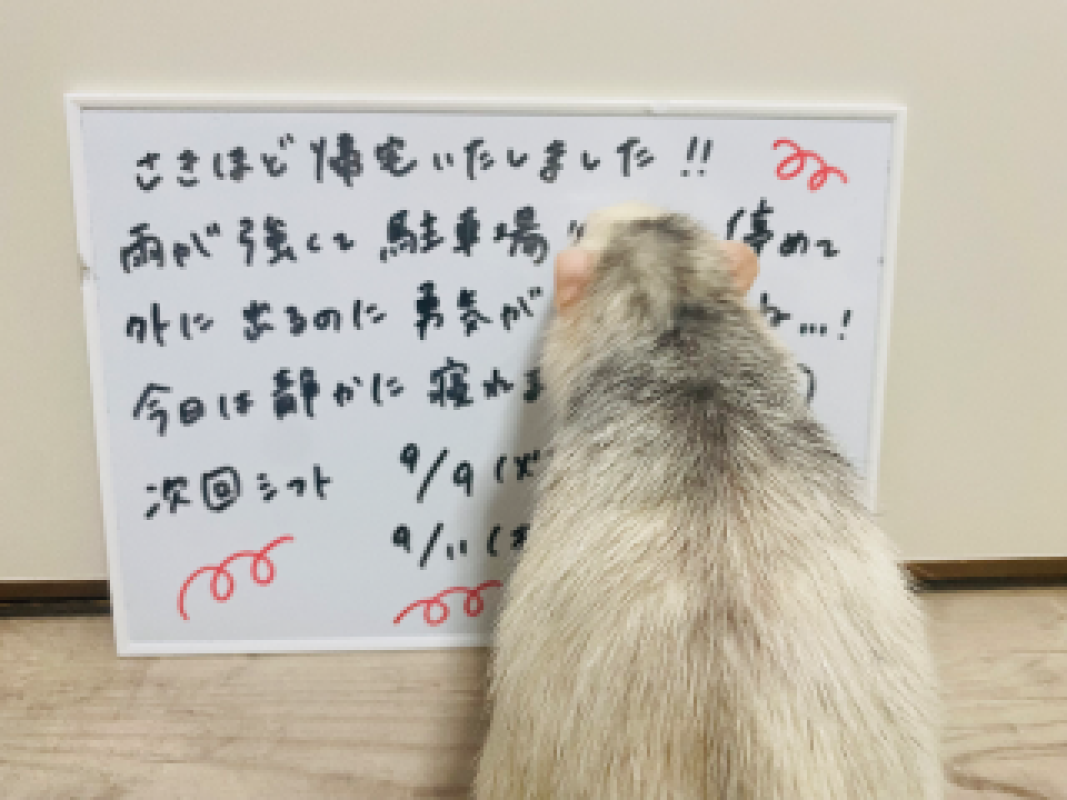 さきほど帰宅いたしました!!
雨が強くて駐車場 停めて
外に出るのに勇気が ...!
今日は静かに寝れま )
次回シフト 9/9(火
9/11(木